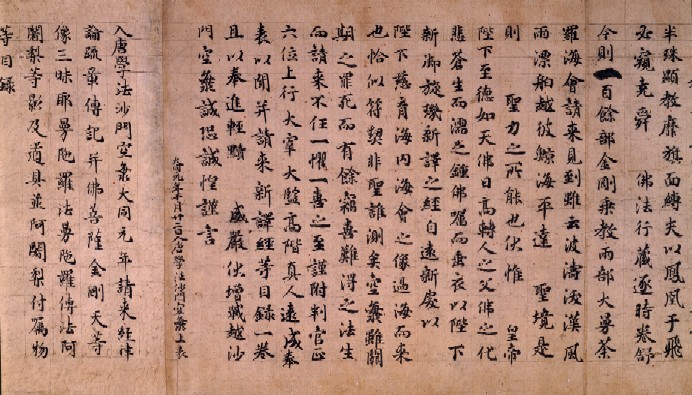 半珠顯教靡旗面縛夫以鳳凰于飛
必窺堯舜 佛法行蔵逐時卷舒
今則一百餘部金剛乗教兩部大曼荼
羅海會請来見到雖云波濤沃漢風
雨漂舶越彼鯨海平達 聖境是
則 聖力之所能也伏惟 皇帝
陛下至德如天佛日高轉人之父佛之化
悲蒼生而濡足鍾佛嘱而垂衣以陛下
新御旋璣新譯之経自遠新戾以
陛下慈育海内海會之像過海而来
也恰似符契非聖誰測矣空海雖闕
期之罪死而有餘竊喜難得之法生
而請来不任一懼一喜之至謹附判官正
六位上行大宰大監高階真人遠成奉
表以聞并請来新譯経等目録一卷
且以奉進輕黷 威嚴伏增戰越沙
門空海誠恐誠惶謹言
大同元年十月廿二日入唐學法沙門空海上表
入唐學法沙門空海大同元年請来経律
論疏章傳記并佛菩薩金剛天等
像三昧耶曼陀羅法曼陀羅傳法阿
闍梨等影及道具并阿闍梨付屬物
等目録